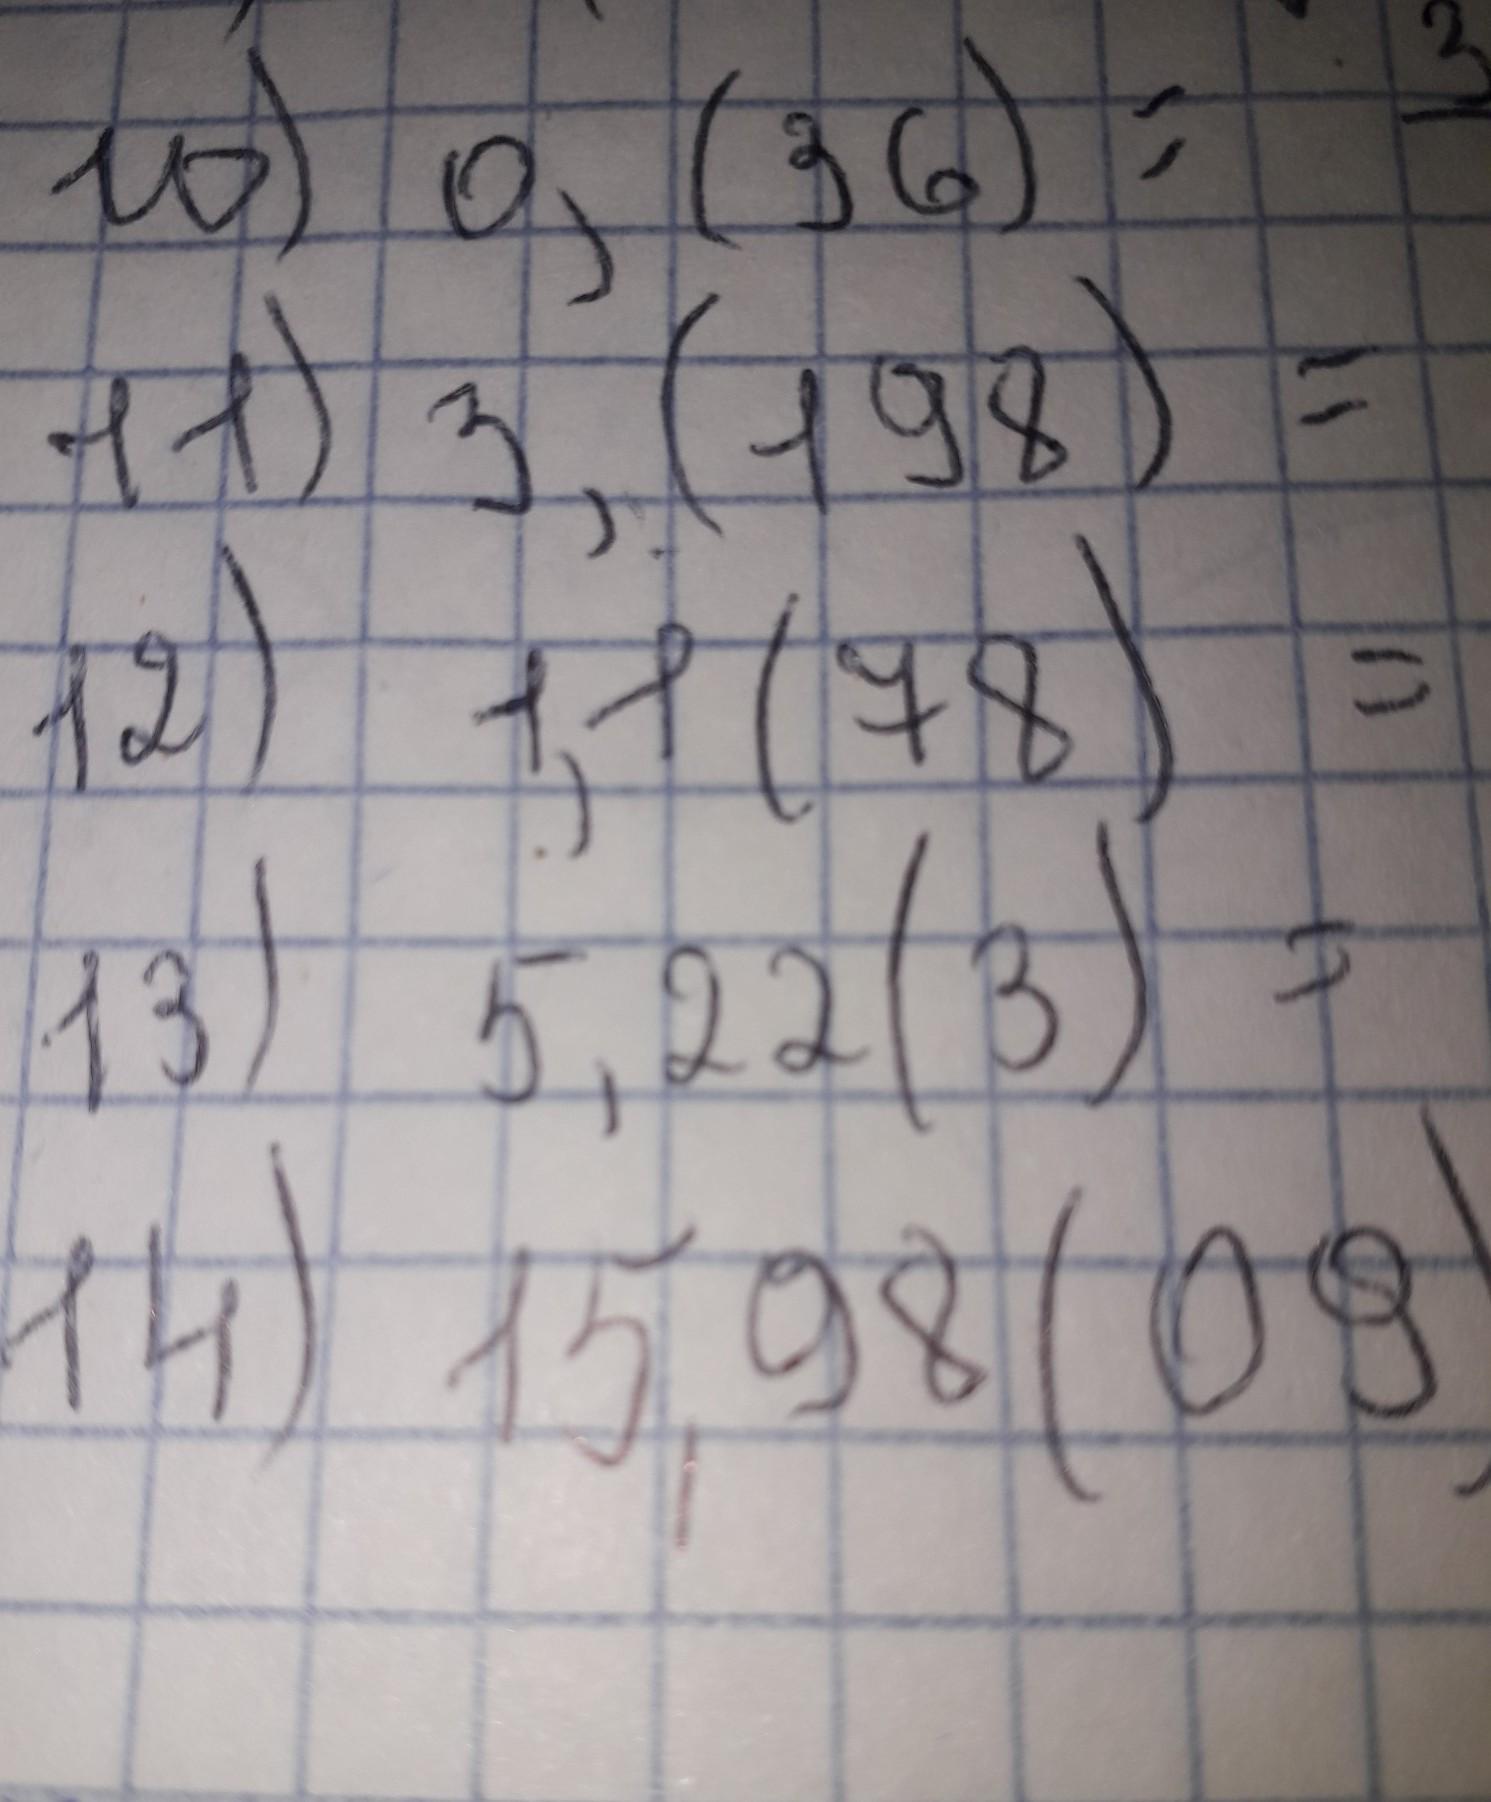 10) 0,(36) =
11) 3,(198) =
12) 1,1(78) =
13) 5,22(3) =
14) 15,98(09)